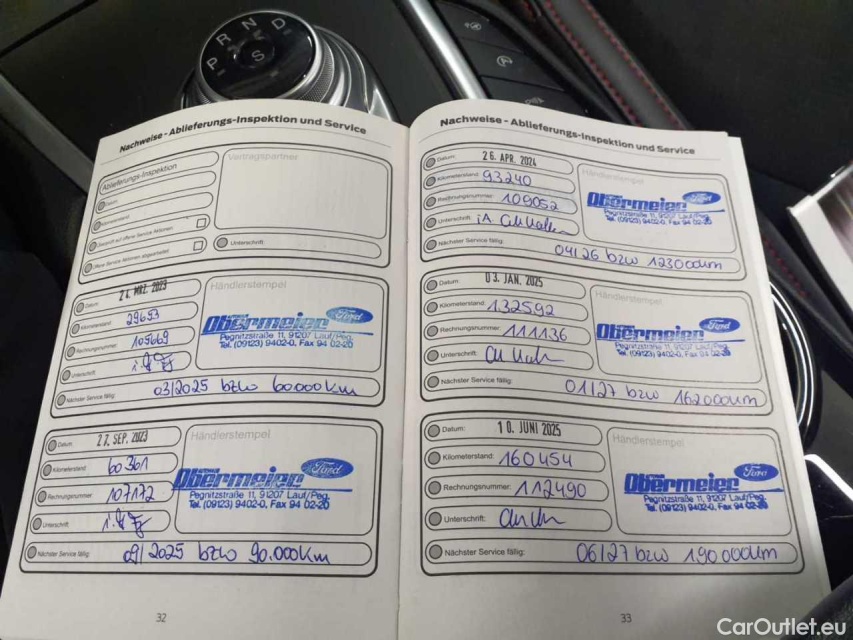 P R N D
S
Nachweise - Ablieferungs-Inspektion und Service
Ablieferungs-Inspektion
Vertragspartner
Datum:
Kilometerstand:
Unterschrift:
24. MRZ. 2023
Datum:
Kilometerstand: 29653
Rechnungsnummer: 105669
Unterschrift:
Händlerstempel
Obermeier Ford
Pegnitzstraße 11, 91207 Lauf/Peg.
Tel. (09123) 9402-0, Fax 94 02-20
Nächster Service fällig: 03/2025 bzw 60.000km
Datum: 27. SEP. 2023
Kilometerstand: 60361
Rechnungsnummer: 107172
Unterschrift:
Händlerstempel
Obermeier Ford
Pegnitzstraße 11, 91207 Lauf/Peg.
Tel. (09123) 9402-0, Fax 94 02-20
Nächster Service fällig: 09/2025 bzw 90.000km
32
Nachweise - Ablieferungs-Inspektion und Service
Datum: 26. APR. 2024
Kilometerstand: 93240
Rechnungsnummer: 109052
Unterschrift: iA
Händlerstempel
Obermeier Ford
Pegnitzstraße 11, 91207 Lauf/Peg.
Tel. (09123) 9402-0, Fax 94 02-20
Nächster Service fällig: 04/26 bzw 123000km
Datum: 03. JAN. 2025
Kilometerstand: 132592
Rechnungsnummer: 111136
Unterschrift:
Händlerstempel
Obermeier Ford
Pegnitzstraße 11, 91207 Lauf/Peg.
Tel. (09123) 9402-0, Fax 94 02-20
Nächster Service fällig: 01/27 bzw 162000km
Datum: 10. JUNI 2025
Kilometerstand: 160454
Rechnungsnummer: 112490
Unterschrift:
Händlerstempel
Obermeier Ford
Pegnitzstraße 11, 91207 Lauf/Peg.
Tel. (09123) 9402-0, Fax 94 02-20
Nächster Service fällig: 06/27 bzw 190000km
33
CarOutlet.eu